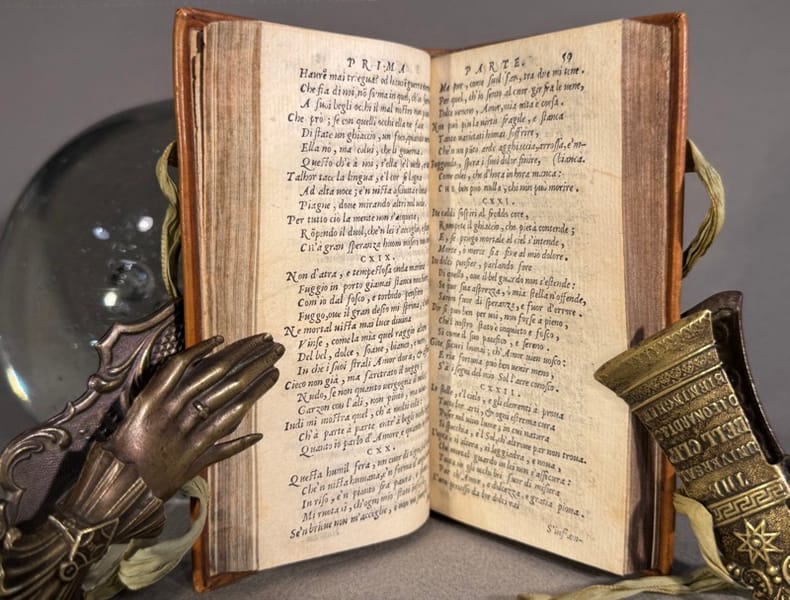 PRIMA
Haure mai triegua? od hauro guerra
Che fia di noi, nõ sò: ma in quel, ch'io
A suoi begli occhi il mal nostro non
Che prò; se con quelli occhi ella ne face
Di state un ghiaccio, un foco quando
Ella nò, ma colui, che li governa,
Questo ch'è à noi, s'ella s'el vede,
Talhor tace la lingua, e'l cor si lagna
Ad alta voce; e'n vista asciutta e lieta
Piagne, dove mirando altri nol vede.
Per tutto ciò la mente non s'acqueta,
Rõpendo il duol, che'n lei s'accoglie,
Ch'à gran speranza huom misero non
CXIX.
Non d'atra, e tempestosa onda marina
Fuggio in porto giamai stanco
Com'io dal fosco, e torbido pensero
Fuggo, ove il gran desio mi sprona,
Ne mortal vista mai luce divina
Vinse, come la mia quel raggio altero
Del bel, dolce, soave, bianco, e nero
In che i suoi strali Amor dora,
Cieco non già, ma faretrato il veggo;
Nudo, se non quanto vergogna il
Garzon con l'ali, non pinto, ma vivo
Indi mi mostra quel, ch'à molti cela:
Ch'à parte à parte entr'à begli
Quanto io parlo d'Amor e quanto
CXX.
Questa humil fera, un cuor di tigre,
Che'n vista humana, e'n forma d'angel
In riso, e'n pianto fra paura,
Mi rota sì, ch'ogni mio stato
Se'n breve non m'accoglie,
PARTE. 59
Ma pur, come suol far, tra due mi tene.
Per quel, ch'io sento al cor gir fra le vene,
Dolce veneno, Amor, mia vita è corsa.
Non può più la virtù fragile, e stanca
Tante varietati homai soffrire,
Che'n un pũto arde agghiaccia, arrossa, e'm-
Fuggendo, spera i suoi dolor finire, (bianca.
Come colei, che d'hora in hora manca:
Che ben può nulla, chi non può morire.
CXXI.
Ite caldi sospiri al freddo core,
Rompete il ghiaccio, che pietà contende;
E, se prego mortale al ciel s'intende,
Morte, ò mercè sia fine al mio dolore.
Ite dolci pensier, parlando fore
Di quello, ove il bel guardo non s'estende:
Se pur sua asprezza, ò mia stella n'offende,
Sarem fuor di speranza, e fuor d'errore.
Dir si può ben per voi, non forse à pieno,
Che'l nostro stato è inquieto e fosco,
Si come il suo pacifico, e sereno
Gite sicuri homai, ch'Amor vien vosco:
E ria fortuna può ben venir meno,
S'à i segni del mio Sol l'aere conosco.
CXXII.
Le stelle, e'l cielo, e gli elementi à prova
Tutte lor arti, & ogni estrema cura
Poser nel vivo lume, in cui natura
Si specchia, e'l Sol, ch'altrove par non trova.
L'opra è sì altera, sì leggiadra, e nova,
Che mortal guardo in lei non s'assicura:
ne gli occhi bei fuor di misura
Par ch'Amor, e dolcezza, e gratia piova.
L'aere percosso da lor dolci rai
S'infiam-
UNIVERSAL
BELT CLIP
BIRMINGHAM